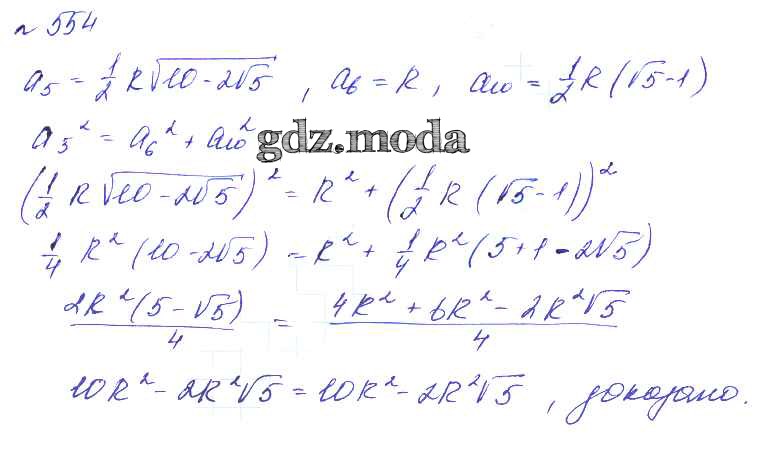 № 554
a₅ = 1/2 R√(10 - 2√5) , a₆ = R, a₁₀ = 1/2 R(√5 - 1)
a₅² = a₆² + a₁₀² gdz.moda
(1/2 R√(10 - 2√5))² = R² + (1/2 R (√5 - 1))²
1/4 R² (10 - 2√5) = R² + 1/4 R² (5 + 1 - 2√5)
2R²(5 - √5)/4 = (4R² + 6R² - 2R²√5)/4
10R² - 2R²√5 = 10R² - 2R²√5 , доказано.